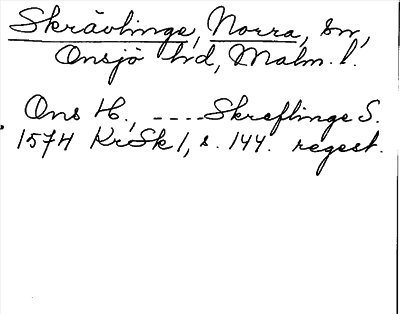 Skrävlinge, Norra, sn,
Onsjö hd, Malm. l.
Ons H., ---- Skreflinge S.
1574 KrSk 1, s. 144. regest.